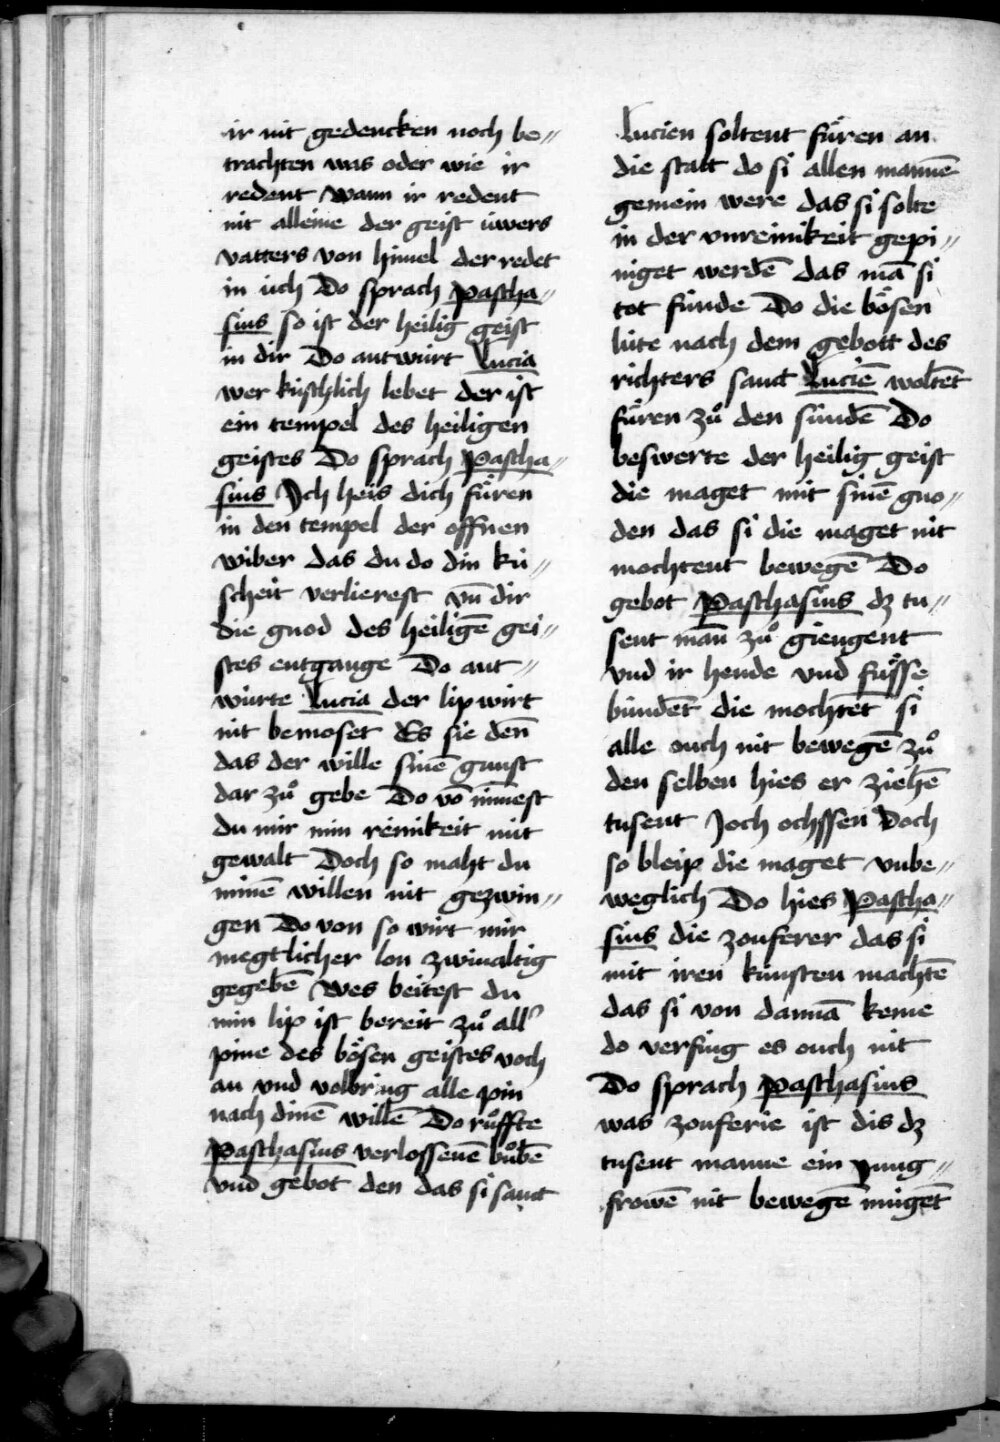 ir nit gedencken noch be〃
trachten was oder wie ir
redent Wann ir redent
nit alleine der geist üwers
vatters von himel der redet
in üch Do sprach Pascha〃
sius so ist der heilig geist
in dir Do antwürt Lucia
wer küschlich lebet der ist
ein tempel des heiligen
geistes Do sprach Pascha〃
sius Jch heis dich fuͤren
in den tempel der offnen
wiber das du do din kü〃
scheit verlierest vn̄ dir
die gnod des heiligē gei〃
stes entgange Do ant〃
würte Lucia der lip wirt
nit bemoset Es sie den̄
das der wille sinē gunst
dar zuͦ gebe Do vō nīmest
du mir min reinikeit mit
gewalt Doch so maht du
minē willen nit gezwin〃
gen Do von so wirt mir
megtlicher lon zwiualtig
gegebē Wes beitest du
min lip ist bereit zuͦ all'
pine des boͤsen geistes voch
an vnd volbring alle pin
nach dinē willē Do ruͦffte
Paschasius verlossenē buͦbē
vnd gebot den das si sanct
Lucien soltent fuͤren an
die statt do si allen mannē
gemein were das si solte
in der vnreinikeit gepi〃
niget werdē das mā si
tot fünde Do die boͤsen
lüte nach dem gebott des
richters sanct Luciē woltēt
fuͤren zuͦ den sündē Do
beswerte der heilig geist
die maget mit sinē gno〃
den das si die maget nit
mochtent bewegē Do
gebot Paschasius dz tu〃
sent man̄ zuͦ giengent
vnd ir hende vnd fuͤsse
bündēt die mochtēt si
alle ouch nit bewegē zuͦ
den selben hies er ziehē
tusent Joch ochssen Doch
so bleip die maget vnbe〃
weglich Do hies Pascha〃
sius die zouferer das si
mit iren künsten machtē
das si von dannā keme
do verfing es ouch nit
Do sprach Paschasius
was zouferie ist dis dz
tusent manne ein jung〃
frowē nit bewegē mügēt